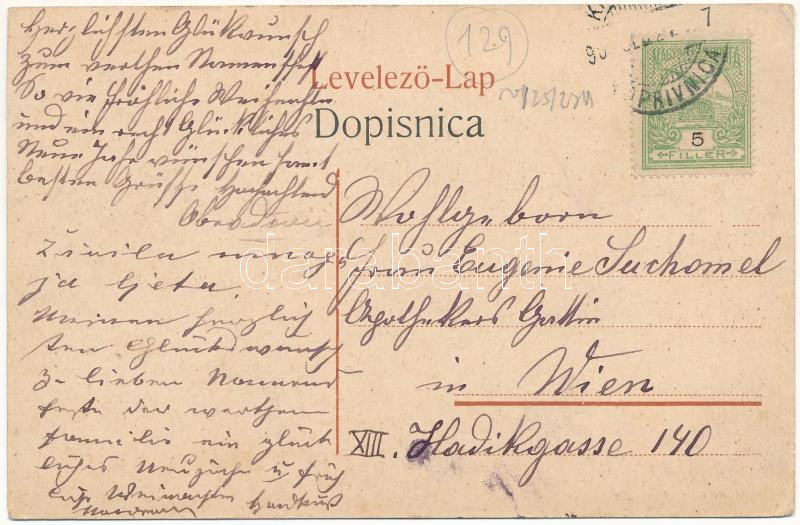 Herzlichsten Glükwunsch
zum werthen Namensfest
So wie fröhliche Weihnachten
und ein recht Glückliches
Neue Jahr wünschen samt
besten Grüsse Hochachtend
Obradović
Živila mnoga
ja ljeta
Meinen herzlich
sten Glückwunsch
z- lieben Namens
feste der werthen
Familie ein glück
liches Neujahr u fröh
liche Weinachten
Handkuß
129
Levelezö-Lap
Dopisnica
7
KOPRIVNICA
5
FILLER
Wohlgeborn
Frau Eugenie Suchomel
Apothekers Gattin
in Wien
XIII. Hadikgasse 140
darabanth